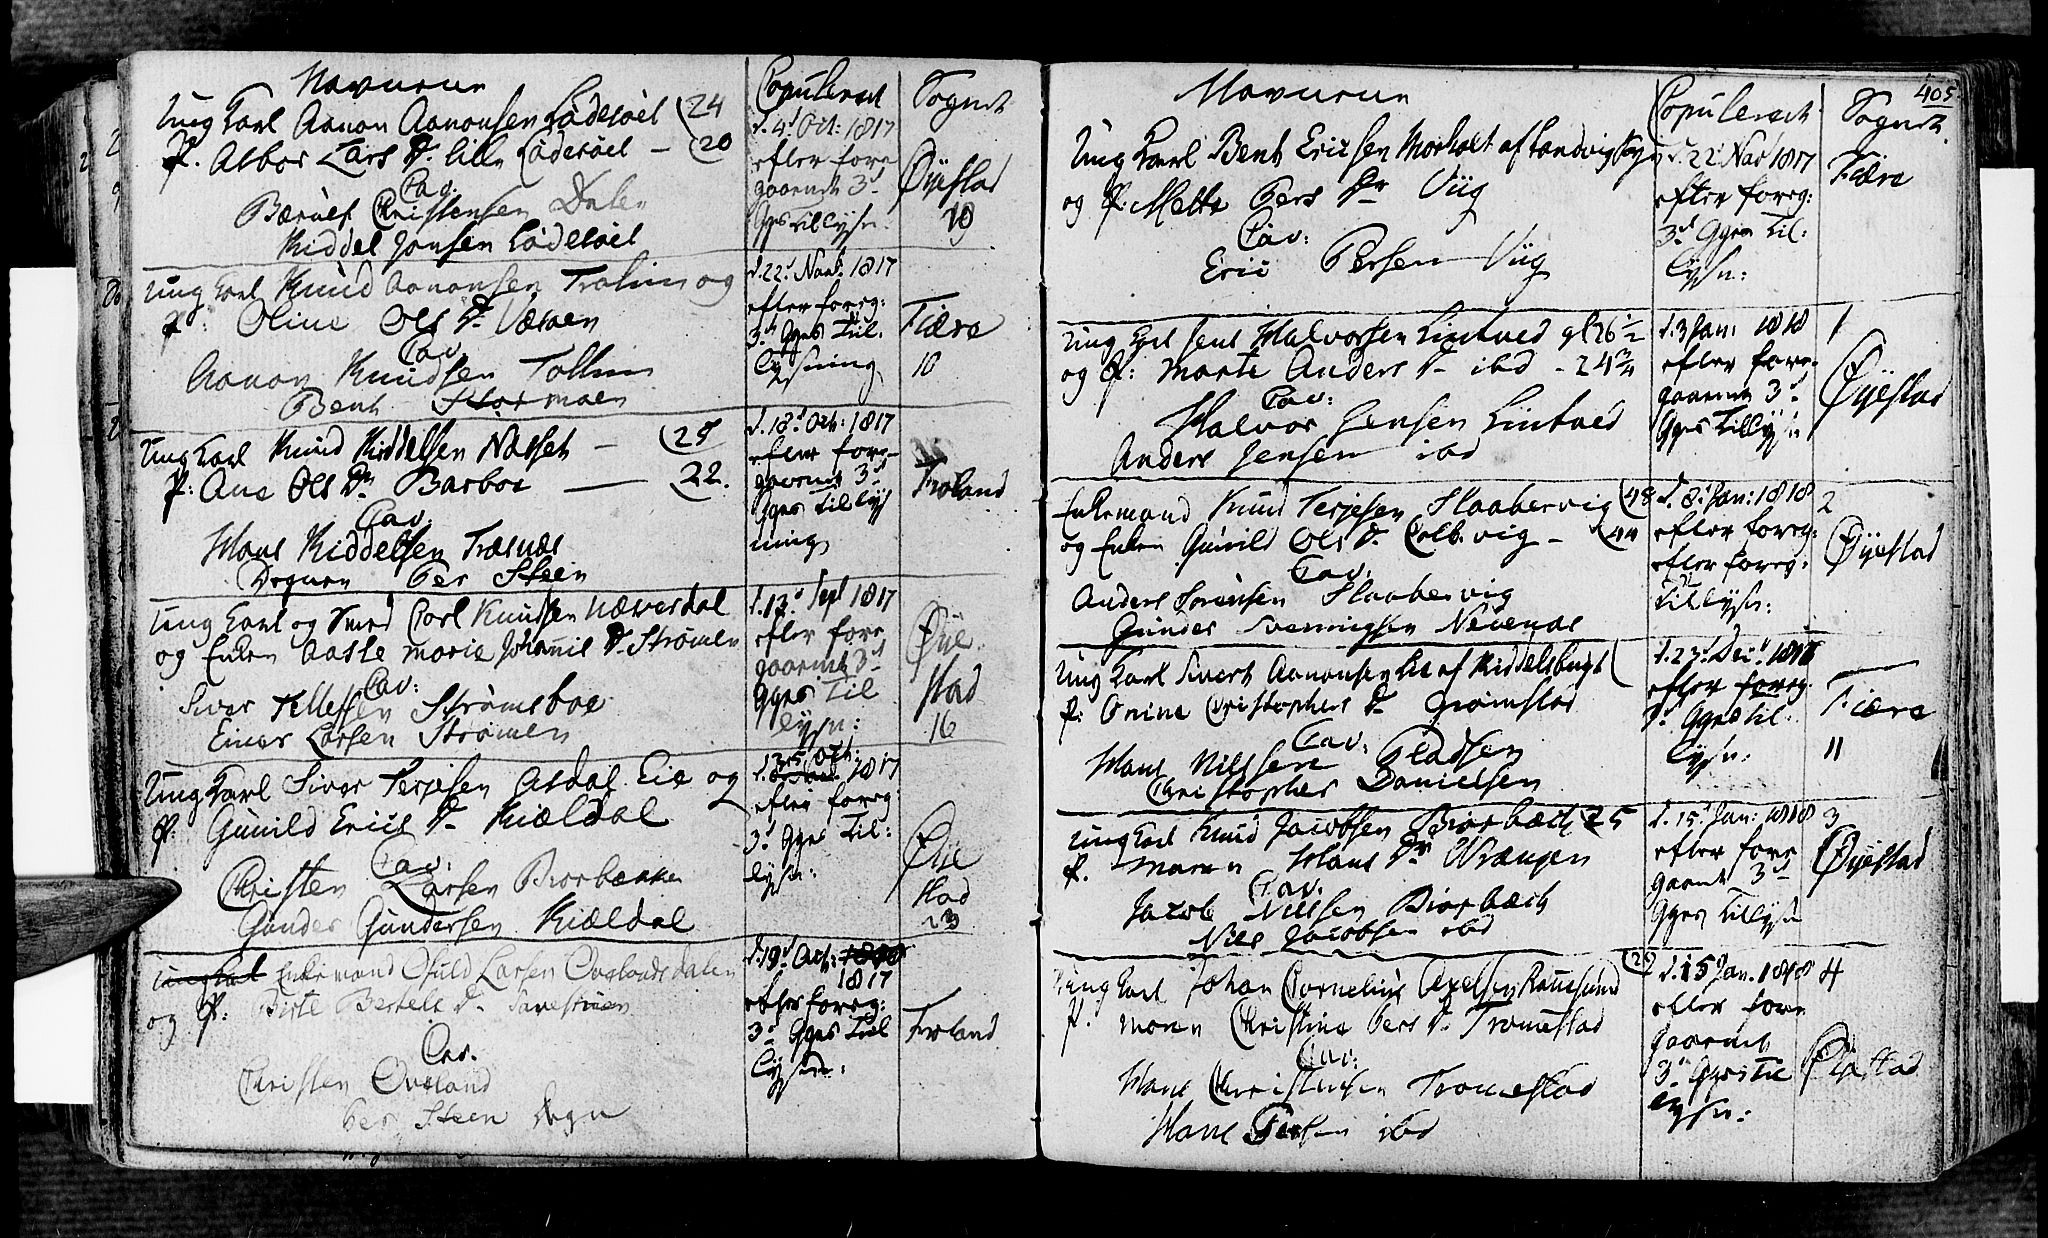 Navnene
Copuleret
Sognet
Ung Karl Aanon Aanonsen Lødesøel (24
P. Asbor Lars D. lille Lødesøel - (20
Cav.
Beruls Christensen Dale
Kiddel Jonsen Lødesøel
d. 4d Oct: 1817
efter fore
gaaende 3d
Gges Tillysn.
Øyestad
19
Ung Karl Knud Aanonsen Tralim og
P: Oline Ols D. Væsoen
Cav.
Aanon Knudsen Tollim
Bent Stormoen
d. 22d Novb. 1817
efter foreg:
3d Gges Til
lysning
Fiære
10
Ung Karl Knud Kiddelsen Næsset - (25
P: Ane Ols Dr Barboe - (22.
Cav.
Hans Kiddelsen Træsnæs
Degnen Per Steen
d. 18d Oct: 1817
efter fore-
gaaende 3d
Gges Tillys
ning
Froland
Ung Karl og Smed Carl Knudsen Næversdal
og Enken Aasle Marie Johannis D. Strømen
Cav:
Siver Tellefsen Strømsboe
Einer Larsen Strømen
d. 12d Sept 1817
efter fore
gaaende 3d
Gges Til
lysn:
Øie
stad
16
Ung Karl Siver Terjesen Asdal Eie og
P: Gunild Erics D. Kiældal
Cav:
Christen Larsen Biorbækken
Gunder Gundersen Kiældal
Oct:
1817
efter foreg:
3d Gges Til:
lysn:
Øie
stad
23
Ungkarl Enkemand Osuld Larsen Ovelandsdalen
og P: Birte Bertels D.
Cav.
Christen Oveland
Per Steen Degn
d. 19d Oct: 1818
1817
efter foreg:
3d Gges Til
lysn:
Froland
405
Navnene
Copuleret
Sognet
Ung Karl Bent Ericsen Morholt af Landvig Sogn
og P: Mette Pers Dr Viig
Cav:
Eric Persen Viig
d. 22d Nov 1817
efter foreg:
3d Gges Til:
lysn:
Fiære
Ung Karl Jens Halvorsen Lintved gl 26 1/2
og P: Marte Anders D. ibd - 24 3/4
Cav:
Halvor Jensen Lintved
Anders Jensen ibd
d. 3 Jan: 1818
efter fore-
gaaende 3d
Gges Tillysn
1
Øyestad
Enkemand Knud Terjesen Slaabervig (48
og Enken Gunild Ols D. Colbvig - (44
Cav:
Anders Sørensen Slaabervig
Gunder Svenningsen Nedenæs
d. 8d Jan: 1818
efter foreg:
efter foreg.
Tillysn:
2
Øyestad
Ung Karl Sivert Aanonsen Lie af Kiddelsbugt (
P: Onine Christophers D. Grømstad
Cav:
Hans Nilssen Pladsen
Christopher Danielsen
d. 27d Dec: 1817
efter foreg.
3d Gges til:
lysn:
Fiære
11
Ung Karl Knud Jacobsen Biorbæch 25
P. Maren Hans Dr Wrængen
Cav.
Jacob Nilssen Biorbæch
Niels Jacobsen ibd
d. 15d Jan: 1818
efter fore
gaaende 3d
Gges Tillysn
3
Øyestad
(29
Ung Karl Johan Cornelius Axelsen Ravnesund
P. Maren Christine Pers D. Tromestad
Cav:
Hans Christensen Tromestad
Hans Persen ibd
d. 15 Jan. 1818
efter fore
gaaende
3d Gges Til
lysn:
4
Øiestad